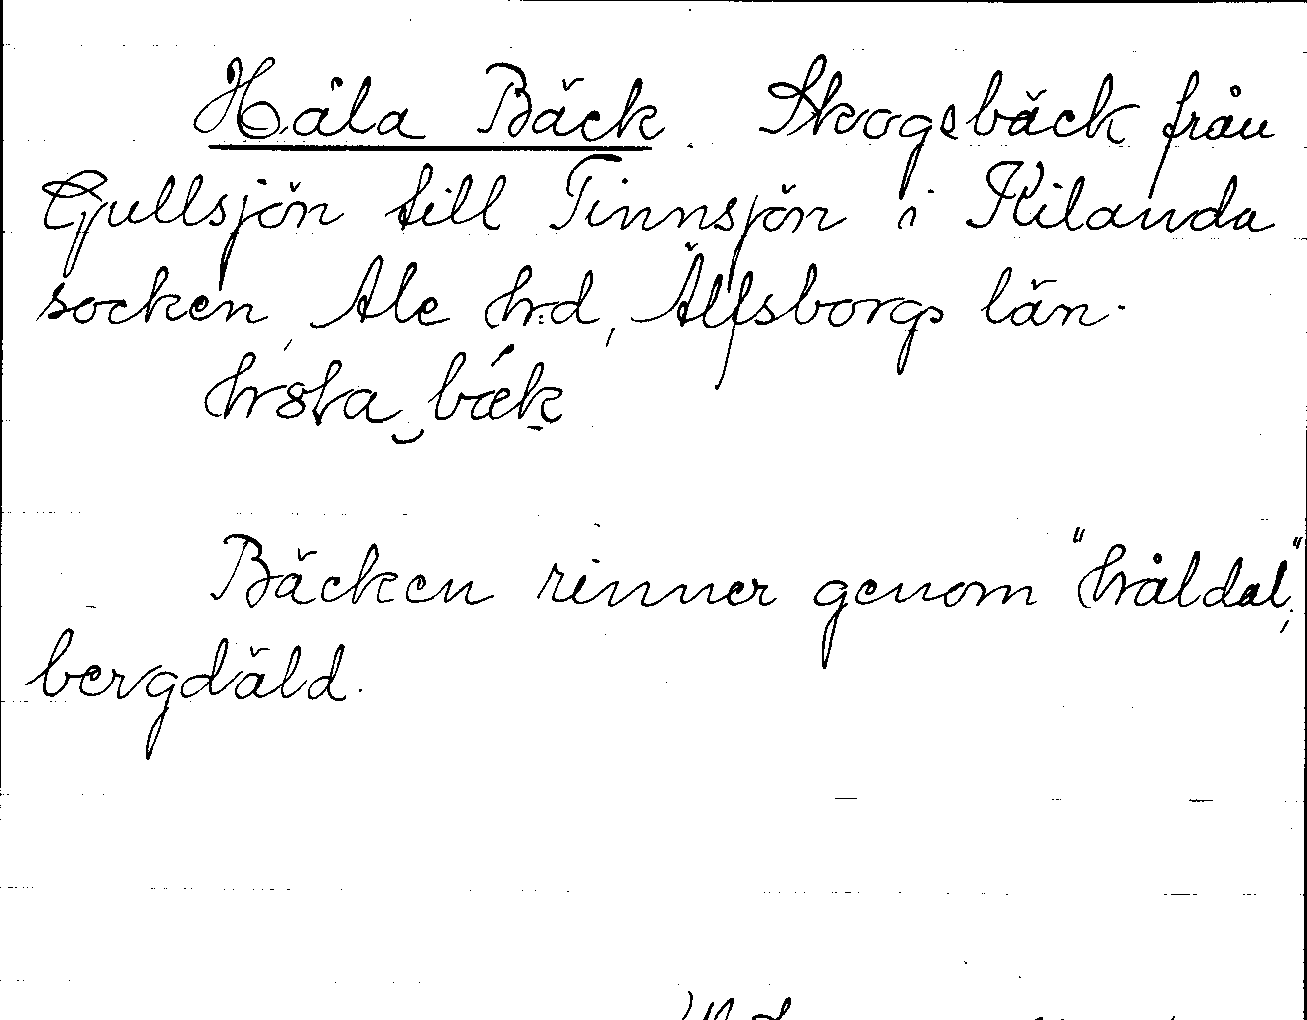 Håla Bäck. Skogsbäck från
Gullsjön till Tinnsjön i Kilanda
socken, Ale hrd, Älfsborgs län.
bäk
Bäcken rinner genom "Håldal",
bergdäld.